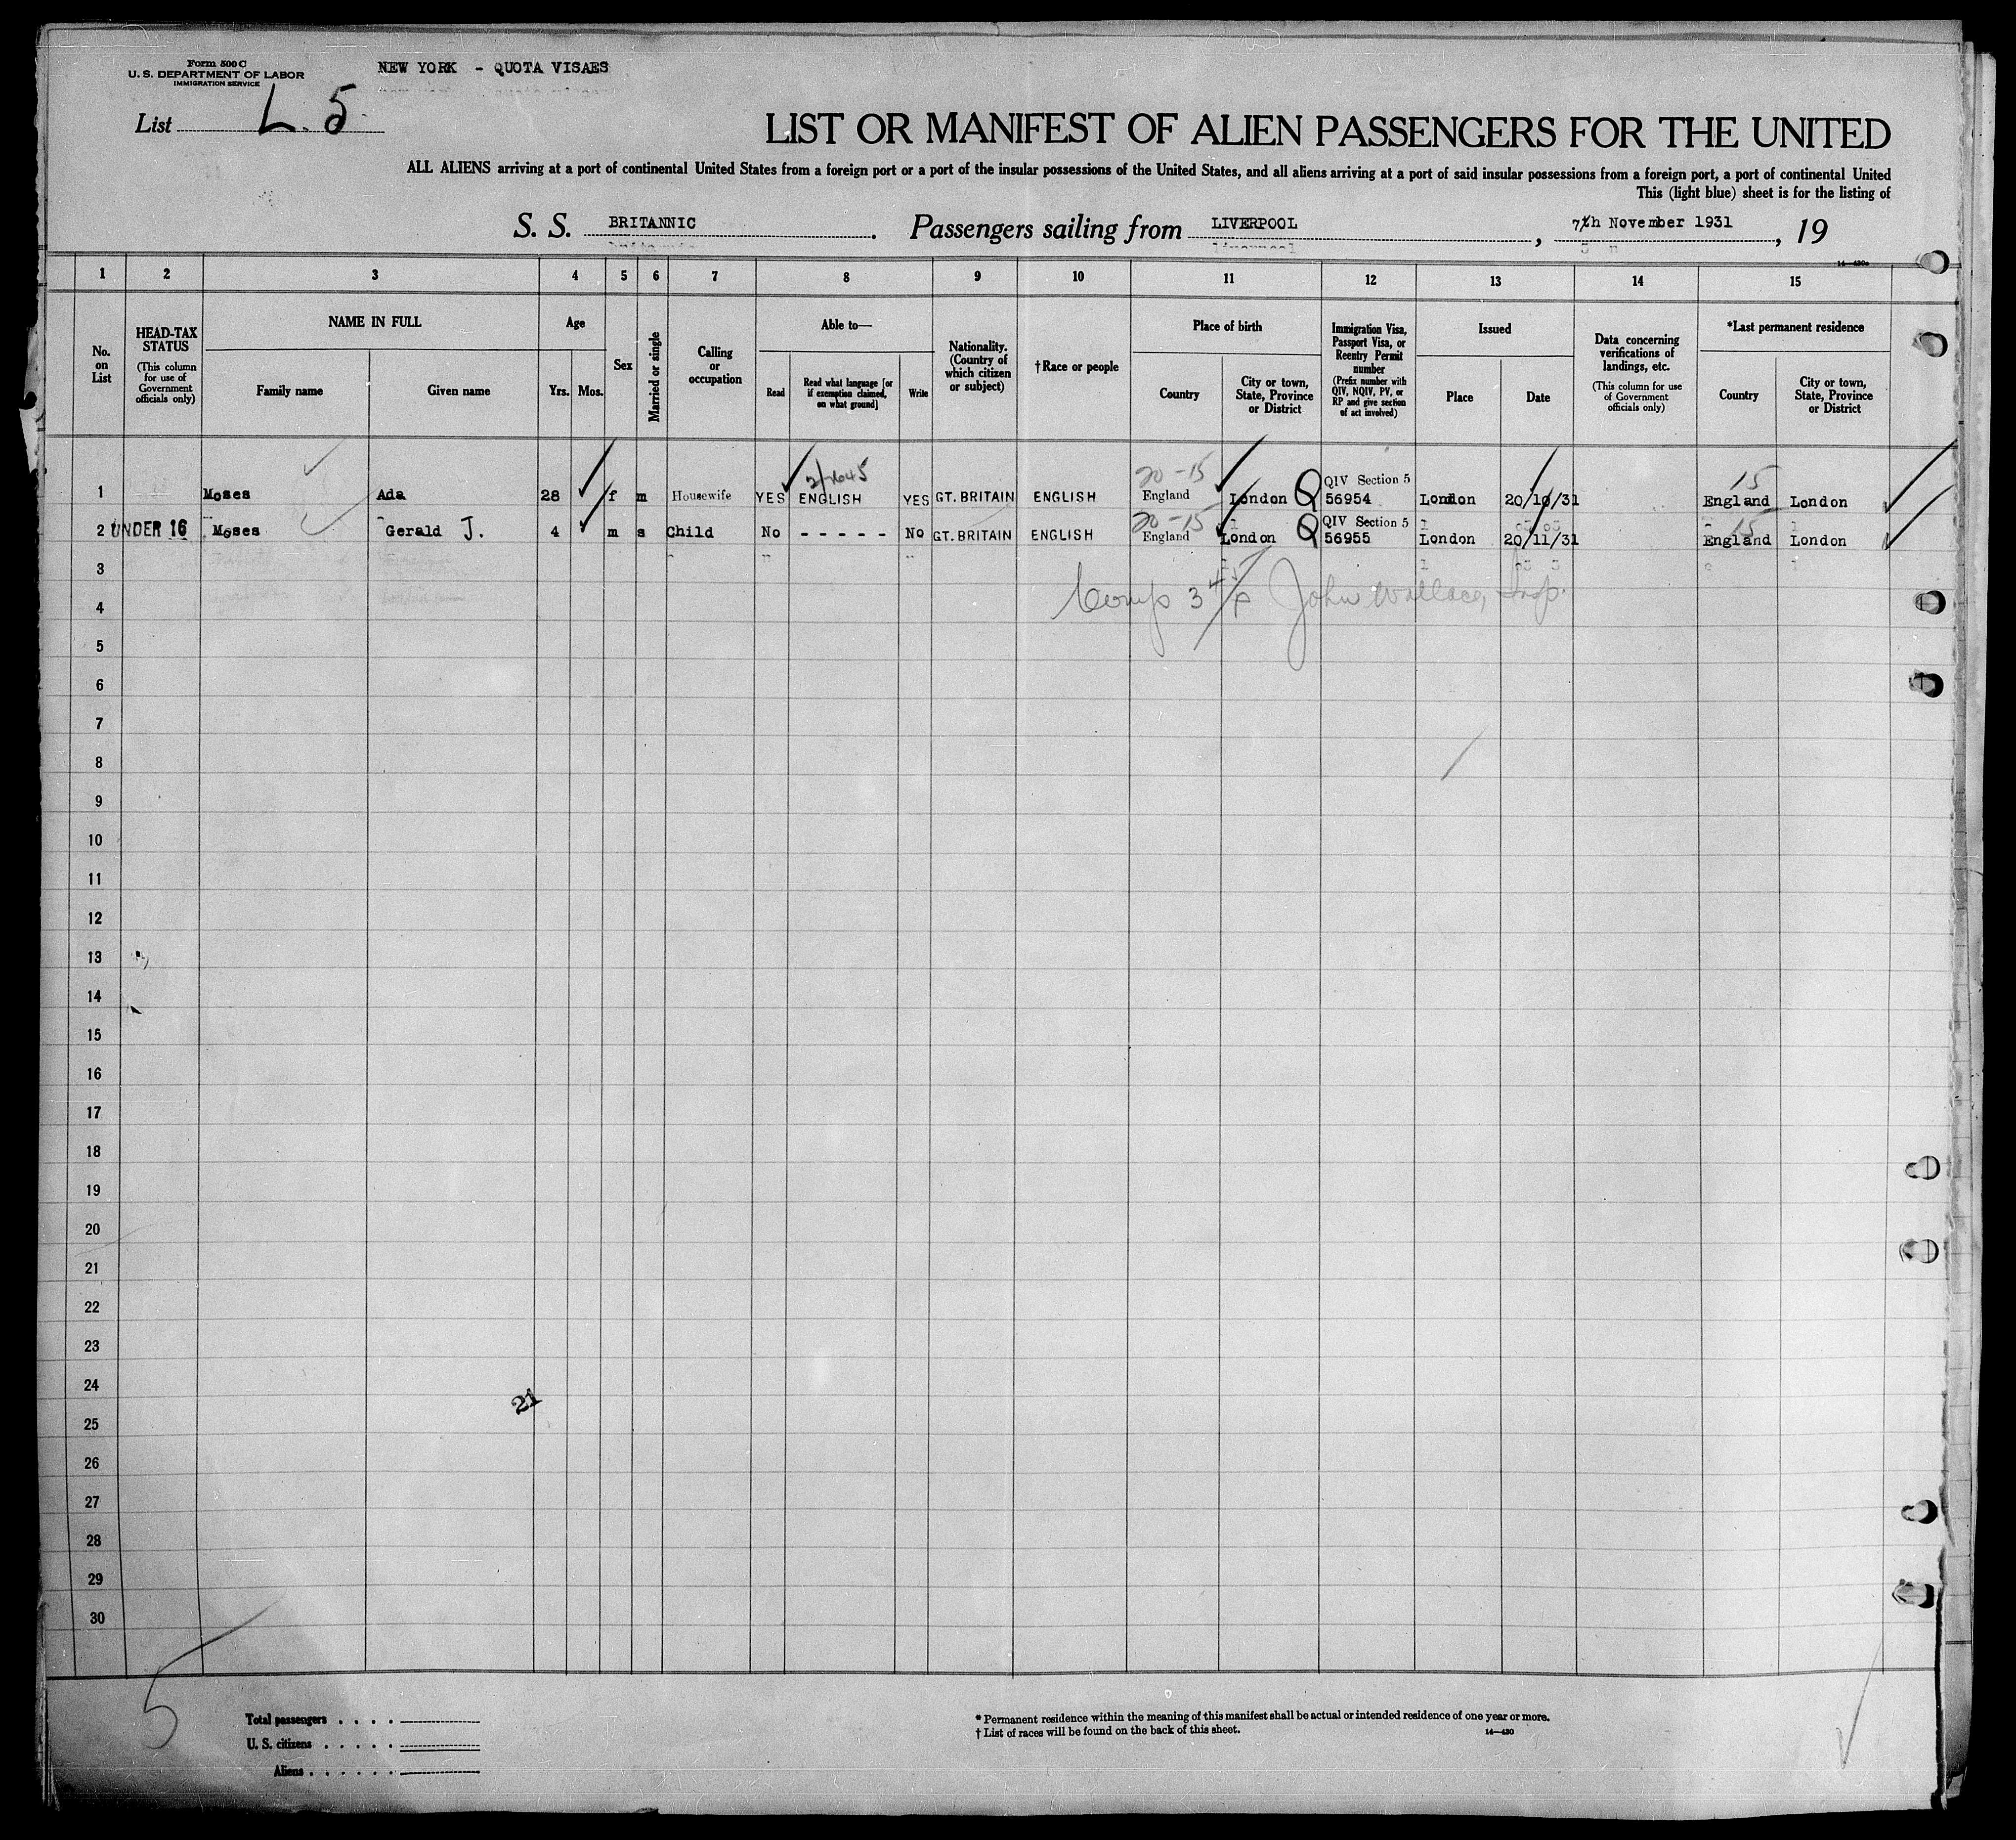 Form 500 C
U. S. DEPARTMENT OF LABOR
IMMIGRATION SERVICE
NEW YORK - QUOTA VISAES
List L. 5
LIST OR MANIFEST OF ALIEN PASSENGERS FOR THE UNITED
ALL ALIENS arriving at a port of continental United States from a foreign port or a port of the insular possessions of the United States, and all aliens arriving at a port of said insular possessions from a foreign port, a port of continental United
This (light blue) sheet is for the listing of
S. S. BRITANNIC. Passengers sailing from LIVERPOOL, 7th November 1931, 19
1 2 3 4 5 6 7 8 9 10 11 12 13 14 15
No. on List
HEAD-TAX STATUS
(This column for use of Government officials only)
NAME IN FULL
Family name
Given name
Age
Yrs. Mos.
Sex
Married or single
Calling or occupation
Able to—
Read
Read what language [or if exemption claimed, on what ground]
Write
Nationality. (Country of which citizen or subject)
†Race or people
Place of birth
Country
City or town, State, Province or District
Immigration Visa, Passport Visa, or Reentry Permit number
(Prefix number with QIV, NQIV, PV, or RP and give section of act involved)
Issued
Place
Date
Data concerning verifications of landings, etc.
(This column for use of Government officials only)
*Last permanent residence
Country
City or town, State, Province or District
20-15 15
1 Moses Ada 28 f m Housewife YES ENGLISH YES GT. BRITAIN ENGLISH England London Q QIV Section 5 56954 London 20/10/31 England London
20-15 15
2 UNDER 16 Moses Gerald J. 4 m s Child No - - - - - No GT. BRITAIN ENGLISH England London Q QIV Section 5 56955 London 20/11/31 England London
3
Comp 3 John Wallace, Insp.
4
5
6
7
8
9
10
11
12
13
14
15
16
17
18
19
20
21
22
23
24
21
25
26
27
28
29
30
5
Total passengers . . . .
U. S. citizens . . . . .
Aliens . . . . . .
* Permanent residence within the meaning of this manifest shall be actual or intended residence of one year or more.
† List of races will be found on the back of this sheet.
14—430